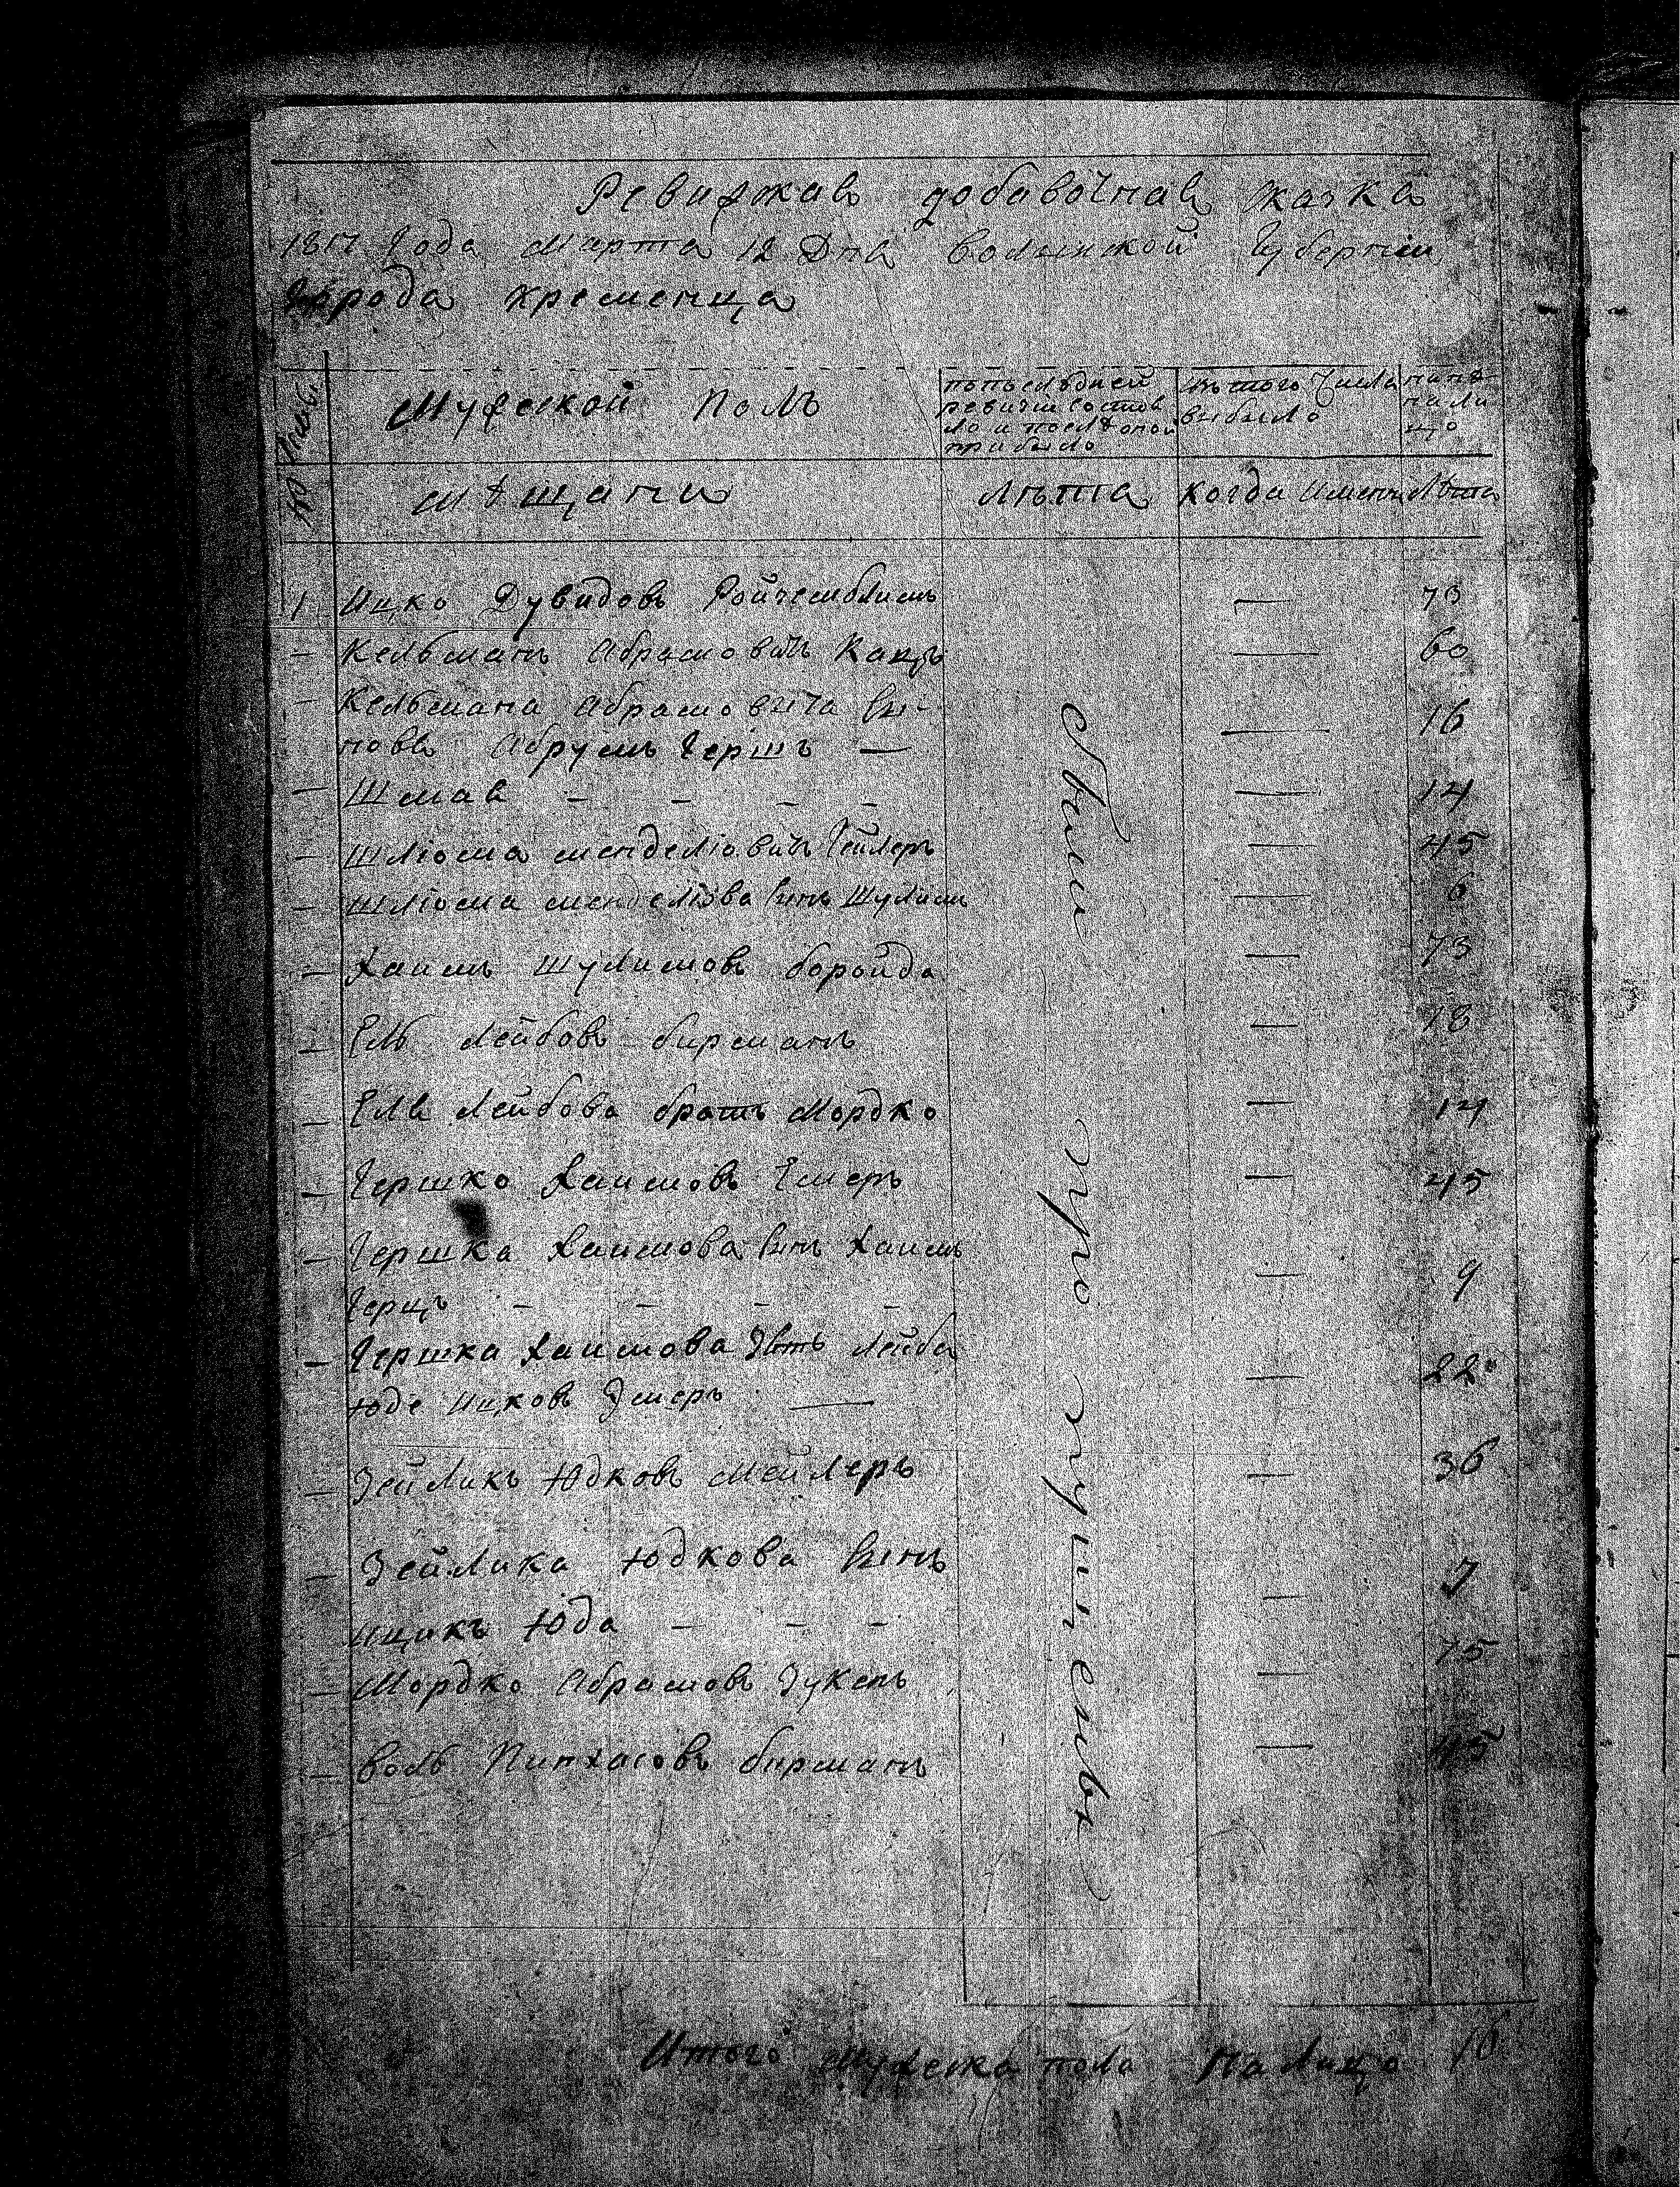 Ревижкая добавочная скаска
1817 Года Марта 12 Дня волынской Губерніи
Города кременца
Мужеской Полъ
попоследней ревизіи состояло и послѣ оной прибыло
изтого Числа выбыло
нынѣ налицо
мѣщани
Лѣта
когда Именно
Лѣта
1 Ицко Дувидовъ — 73
— Кельманъ Абрамовичъ Кацъ — 60
— Кельмана Абрамовича сы-
новя Абрумъ Гершъ — 16
— Шмая - - - - — 14
— Шліома менделіовичъ — 45
— Шліома менделіова сынъ Шулимъ — 6
— Хаимъ Шулимовъ боройда — 73
— Ель Лейбовъ бирманъ — 18
— Еля Лейбова братъ Мордко — 14
— Гершко Хаимовъ — 45
— Гершка Хаимова сынъ Хаимъ
Герцъ - - - - — 9
— Гершка Хаимова Зять Лейба
Юде Ицковъ — 22
— Зейликъ Юдковъ Мейлеръ — 36
— Зейлика Юдкова сынъ
ицикъ Юда - - - — 7
— Мордко Абрамовъ — 75
— Воль Пинхасовъ бирманъ — 45
Итого мужеска пола На Лицо 16